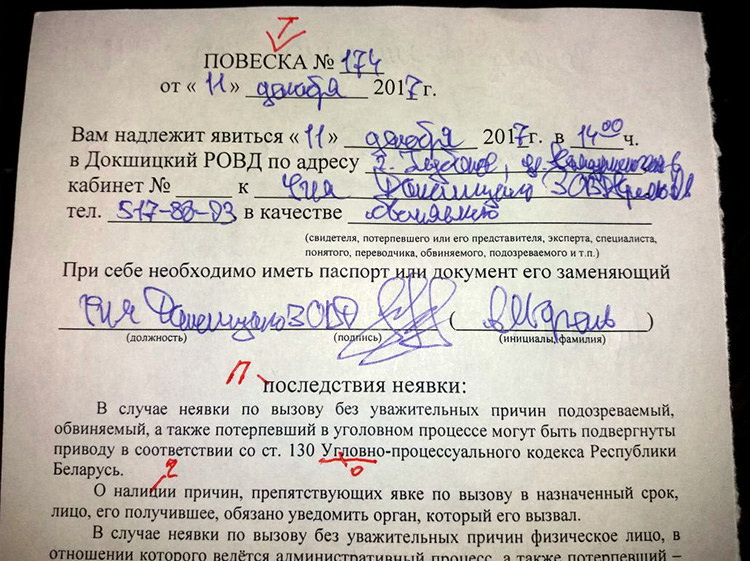 Т
ПОВЕСКА № 174
от « 11 » декабря 2017 г.
Вам надлежит явиться « 11 » декабря 2017 г. в 14 00 ч.
в Докшицкий РОВД по адресу
кабинет № к
тел. 517-88-03 в качестве
(свидетеля, потерпевшего или его представителя, эксперта, специалиста,
понятого, переводчика, обвиняемого, подозреваемого и т.п.)
При себе необходимо иметь паспорт или документ его заменяющий
( )
(должность) (подпись) (инициалы, фамилия)
П
последствия неявки:
В случае неявки по вызову без уважительных причин подозреваемый,
обвиняемый, а также потерпевший в уголовном процессе могут быть подвергнуты
приводу в соответствии со ст. 130 Угловно-процессуального кодекса Республики
о
Беларусь.
О налиции причин, препятствующих явке по вызову в назначенный срок,
лицо, его получившее, обязано уведомить орган, который его вызвал.
В случае неявки по вызову без уважительных причин физическое лицо, в
отношении которого ведётся административный процесс, а также потерпевший –